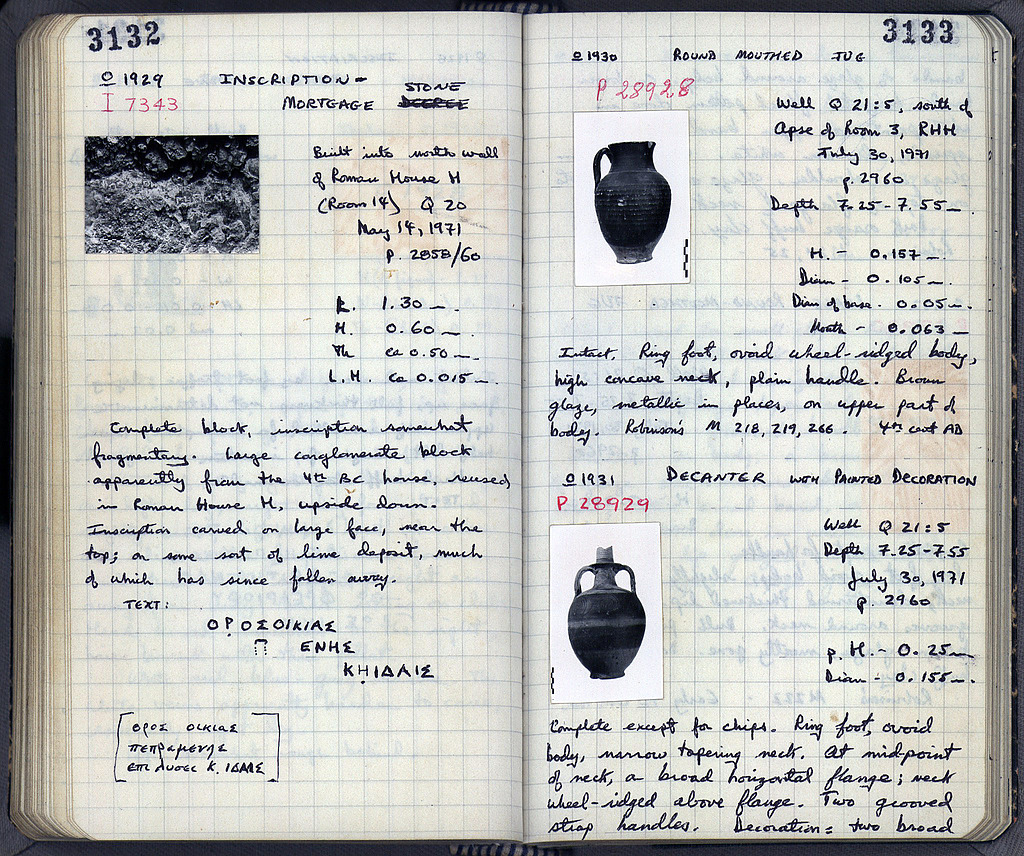 3132
O 1929 INSCRIPTION -
I 7343 MORTGAGE STONE DECREE
Built into north wall
of Roman House H
(Room 14) Q 20
May 14, 1971
p. 2858/60
L. 1.30 m.
H. 0.60 m.
Th ca 0.50 m.
L.H. ca 0.015 m.
Complete block, inscription somewhat
fragmentary. Large conglomerate block
apparently from the 4th BC house, reused
in Roman House H, upside down.
Inscription carved on large face, near the
top; on some sort of lime deposit, much
of which has since fallen away.
TEXT:
ΟΡΟΣΟΙΚΙΑΣ
Π ΕΝΗΣ
ΚΗΙΔΑΙΣ
ορος οικιας
πεπραμενης
επι λυσει Κ. ΙΔΑΙΣ
3133
O 1930 ROUND MOUTHED JUG
P 28928
Well Q 21:5, south of
Apse of Room 3, RHH
July 30, 1971
p. 2960
Depth 7.25-7.55 m.
H. - 0.157 m
Diam - 0.105 m.
Diam of base. 0.05 m.
Mouth - 0.063 m
Intact. Ring foot, ovoid wheel-ridged body,
high concave neck, plain handle. Brown
glaze, metallic in places, on upper part of
body. Robinson's M 218, 219, 266. 4th cent AD
O 1931 DECANTER WITH PAINTED DECORATION
P 28929
Well Q 21:5
Depth 7.25-7.55
July 30, 1971
p. 2960
p. H. - 0.25 m
Diam - 0.155 m.
Complete except for chips. Ring foot, ovoid
body, narrow tapering neck. At mid-point
of neck, a broad horizontal flange; neck
wheel-ridged above flange. Two grooved
strap handles. Decoration: two broad